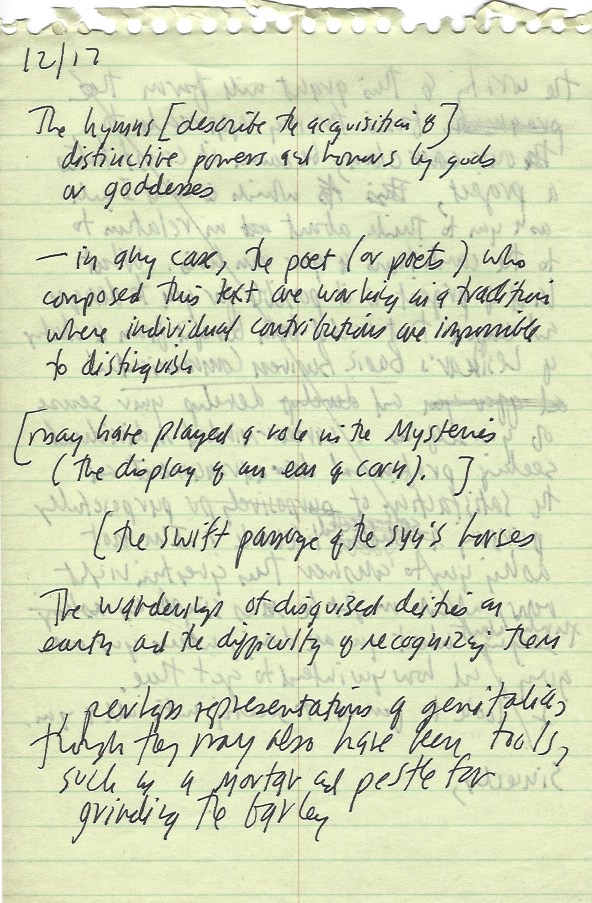 12/17
The hymns [describe the acquisition of]
distinctive powers and honors by gods
or goddesses
— in any case, the poet (or poets) who
composed this text are working in a tradition
where individual contributions are impossible
to distinguish
[may have played a role in the Mysteries
(the display of an ear of corn). ]
[the swift passage of the sun's horses
The wanderings of disguised deities on
earth and the difficulty of recognizing them
, perhaps representations of genitalia,
though they may also have been tools,
such as a mortar and pestle for
grinding the barley